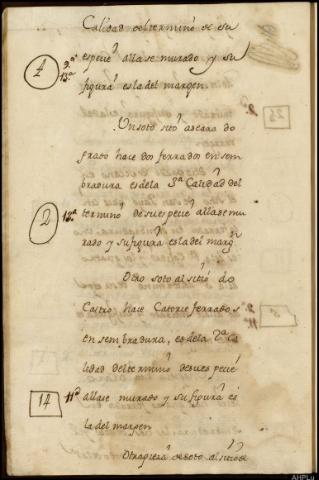 Calidad del termino de su
especie allase murado y su
figura es la del margen
Un soto sitio
prado hace dos ferrados en sem
bradura es dela 3ª Calidad del
termino de su especie allase mu
rado y su figura es la del margen
Otro soto al sitio do
Castro hace Catorce ferrados
en sembradura, es dela 2ª Ca
lidad del termino de su especie
allase murado y su figura es
la del margen
Otra pieza de soto al sitio de
4
2
14
AHPLu